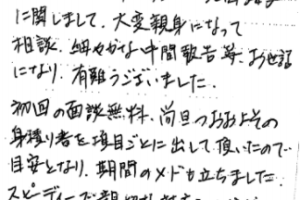 に関しまして、大変親身になって
相談、細やかな中間報告等、お世話
になり、有難うございました。
初回の面談無料、尚且つおおよその
身積り者を項目ごとに出して頂いたので
目安となり、期間のメドも立ちました。
スピーディーで親切な